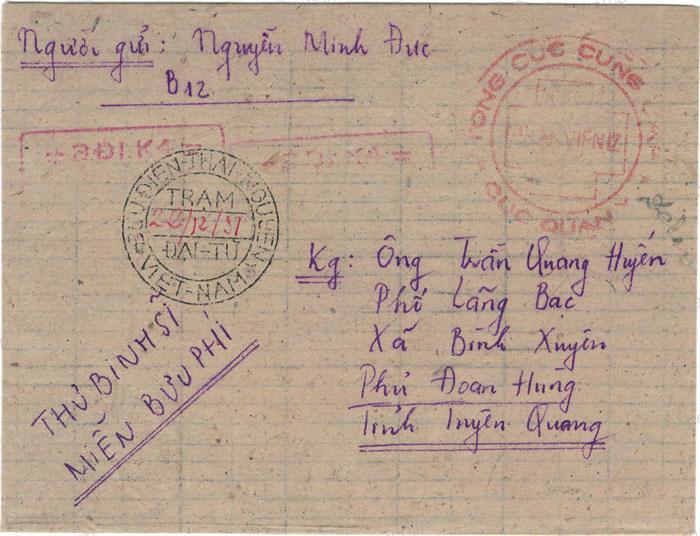 Người gửi: Nguyễn Minh Đức
B12
ĐI.KA
BƯU-ĐIỆN-THÁI-NGUYÊN
TRẠM
22/12/51
ĐẠI-TỪ
VIỆT-NAM
TỔNG CỤC CUNG
CỤC QUÂN
Kg: Ông Trần Quang Huyến
Phố Lãng Bạc
Xã Bình Xuyên
Phủ Đoan Hùng
Tỉnh Tuyên Quang
THƯ BINH SĨ
MIỄN BƯU PHÍ